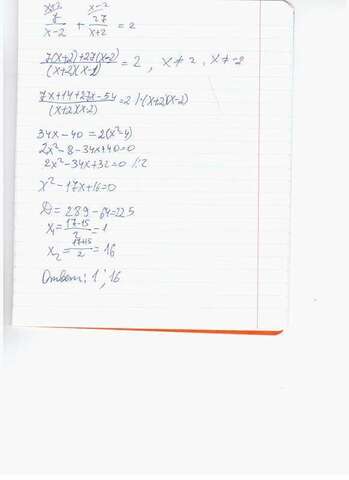 x+2 x-2
7/(x-2) + 27/(x+2) = 2
(7(x+2)+27(x-2))/((x+2)(x-2)) = 2, x≠2, x≠-2
(7x+14+27x-54)/((x+2)(x-2)) = 2 |·(x+2)(x-2)
34x-40=2(x²-4)
2x²-8-34x+40=0
2x²-34x+32=0 /:2
x²-17x+16=0
D=289-64=225
x₁=(17-15)/2=1
x₂=(17+15)/2=16
Ответ: 1; 16